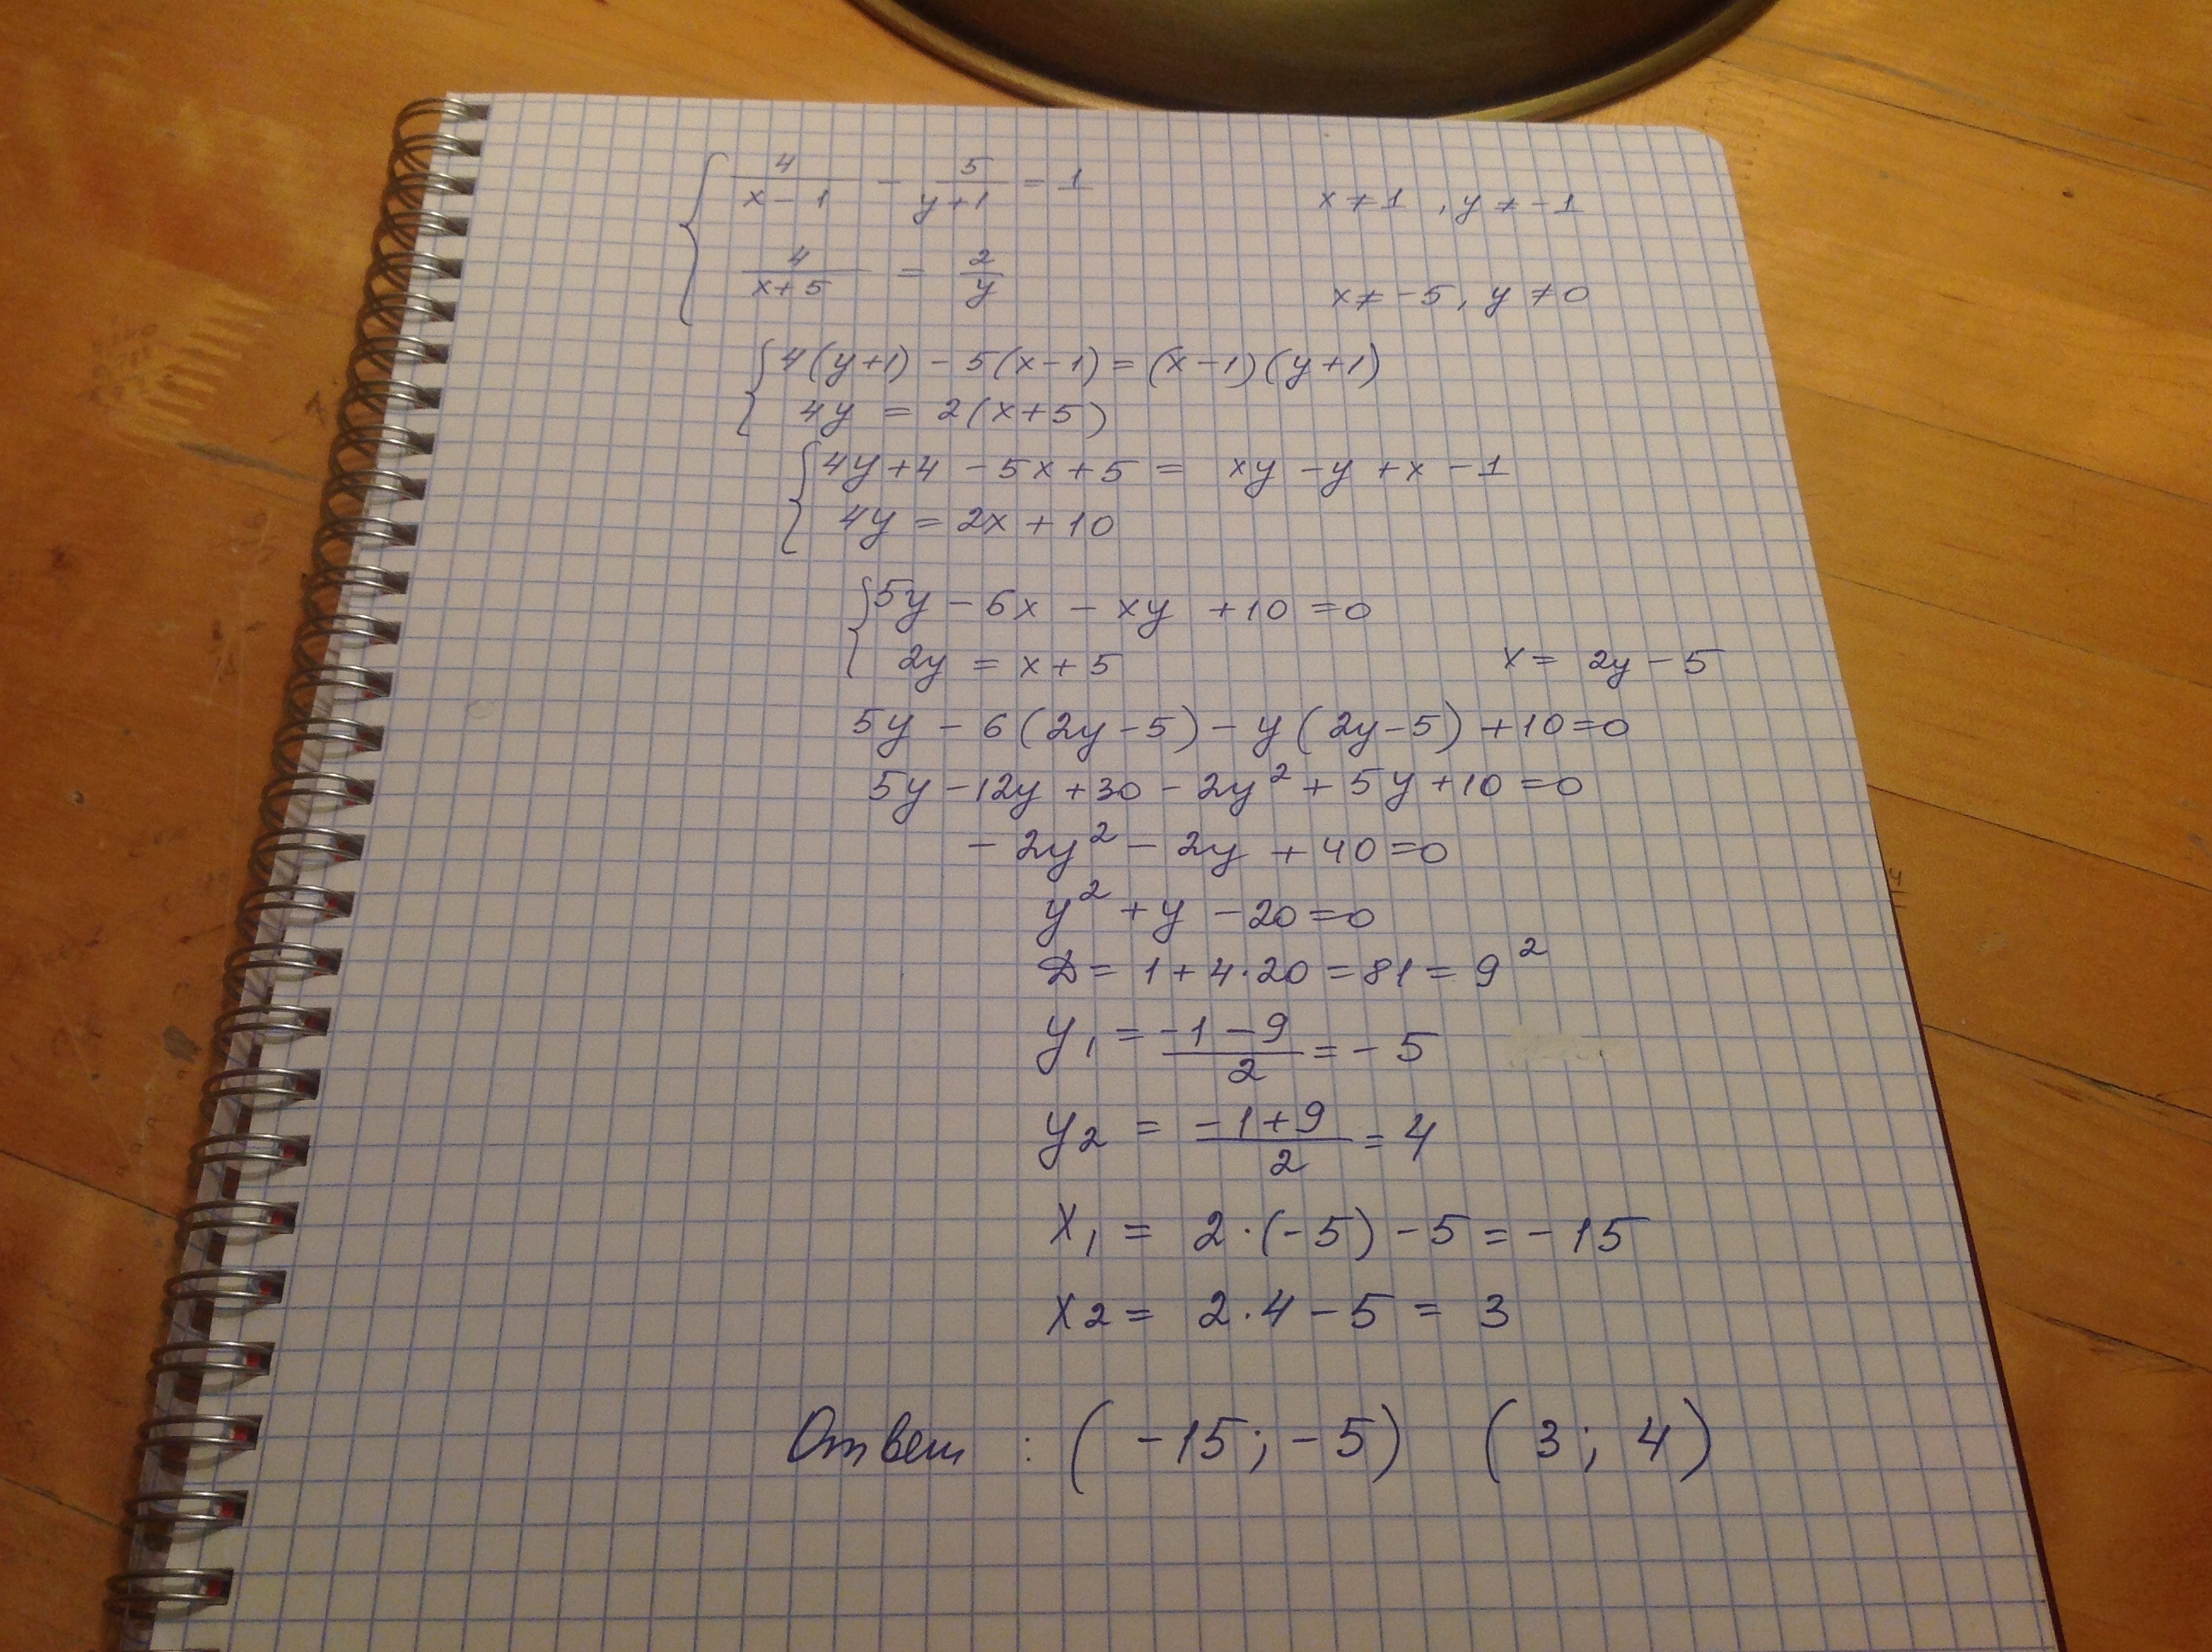 { 4/(x-1) - 5/(y+1) = 1    x ≠ 1, y ≠ -1
4/(x+5) = 2/y    x ≠ -5, y ≠ 0
{ 4(y+1) - 5(x-1) = (x-1)(y+1)
4y = 2(x+5)
{ 4y+4 - 5x+5 = xy - y + x - 1
4y = 2x + 10
{ 5y - 6x - xy + 10 = 0
2y = x+5    x = 2y - 5
5y - 6(2y-5) - y(2y-5) + 10 = 0
5y - 12y + 30 - 2y² + 5y + 10 = 0
- 2y² - 2y + 40 = 0
y² + y - 20 = 0
D = 1 + 4·20 = 81 = 9²
y₁ = (-1-9)/2 = -5
y₂ = (-1+9)/2 = 4
x₁ = 2·(-5) - 5 = -15
x₂ = 2·4 - 5 = 3
Ответ : (-15; -5) (3; 4)